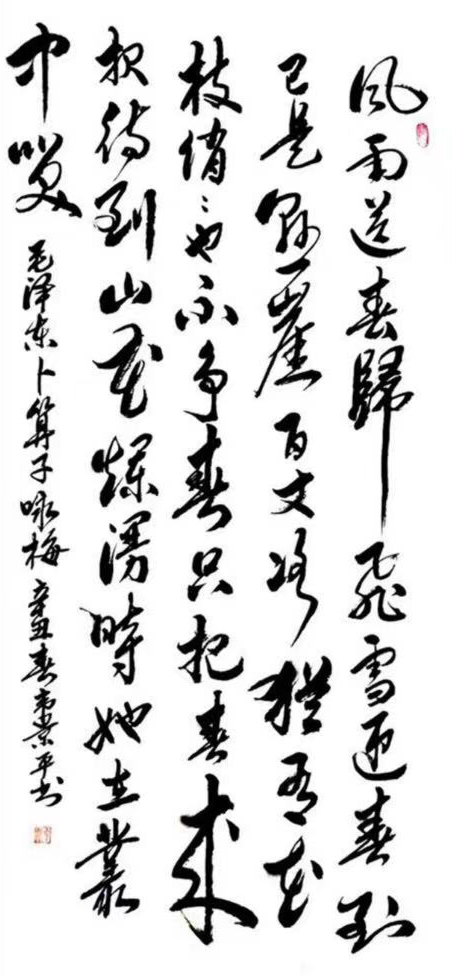 風雨送春歸飛雪迎春到
已是懸崖百丈冰猶有花
枝俏〻也不争春只把春來
报待到山花爛漫時她在叢
中笑
毛泽东卜算子咏梅 辛丑春韦業平书